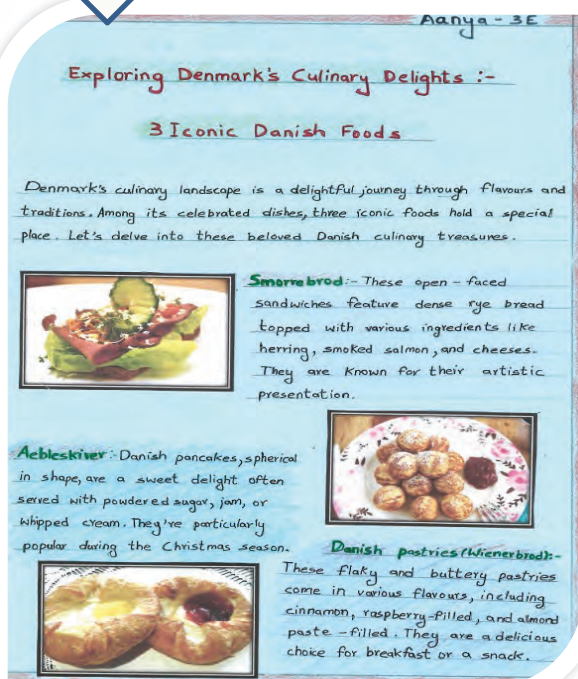 Aanya - 3E
Exploring Denmark's Culinary Delights :-
3 Iconic Danish Foods
Denmark's culinary landscape is a delightful journey through flavours and
traditions. Among its celebrated dishes, three iconic foods hold a special
place. Let's delve into these beloved Danish culinary treasures.
Smorrebrod:- These open - faced
sandwiches feature dense rye bread
topped with various ingredients like
herring, smoked salmon, and cheeses.
They are known for their artistic
presentation.
Aebleskiver:- Danish pancakes, spherical
in shape, are a sweet delight often
served with powdered sugar, jam, or
whipped cream. They're particularly
popular during the Christmas season.
Danish pastries (Wienerbrod):-
These flaky and buttery pastries
come in various flavours, including
cinnamon, raspberry-filled, and almond
paste -filled. They are a delicious
choice for breakfast or a snack.